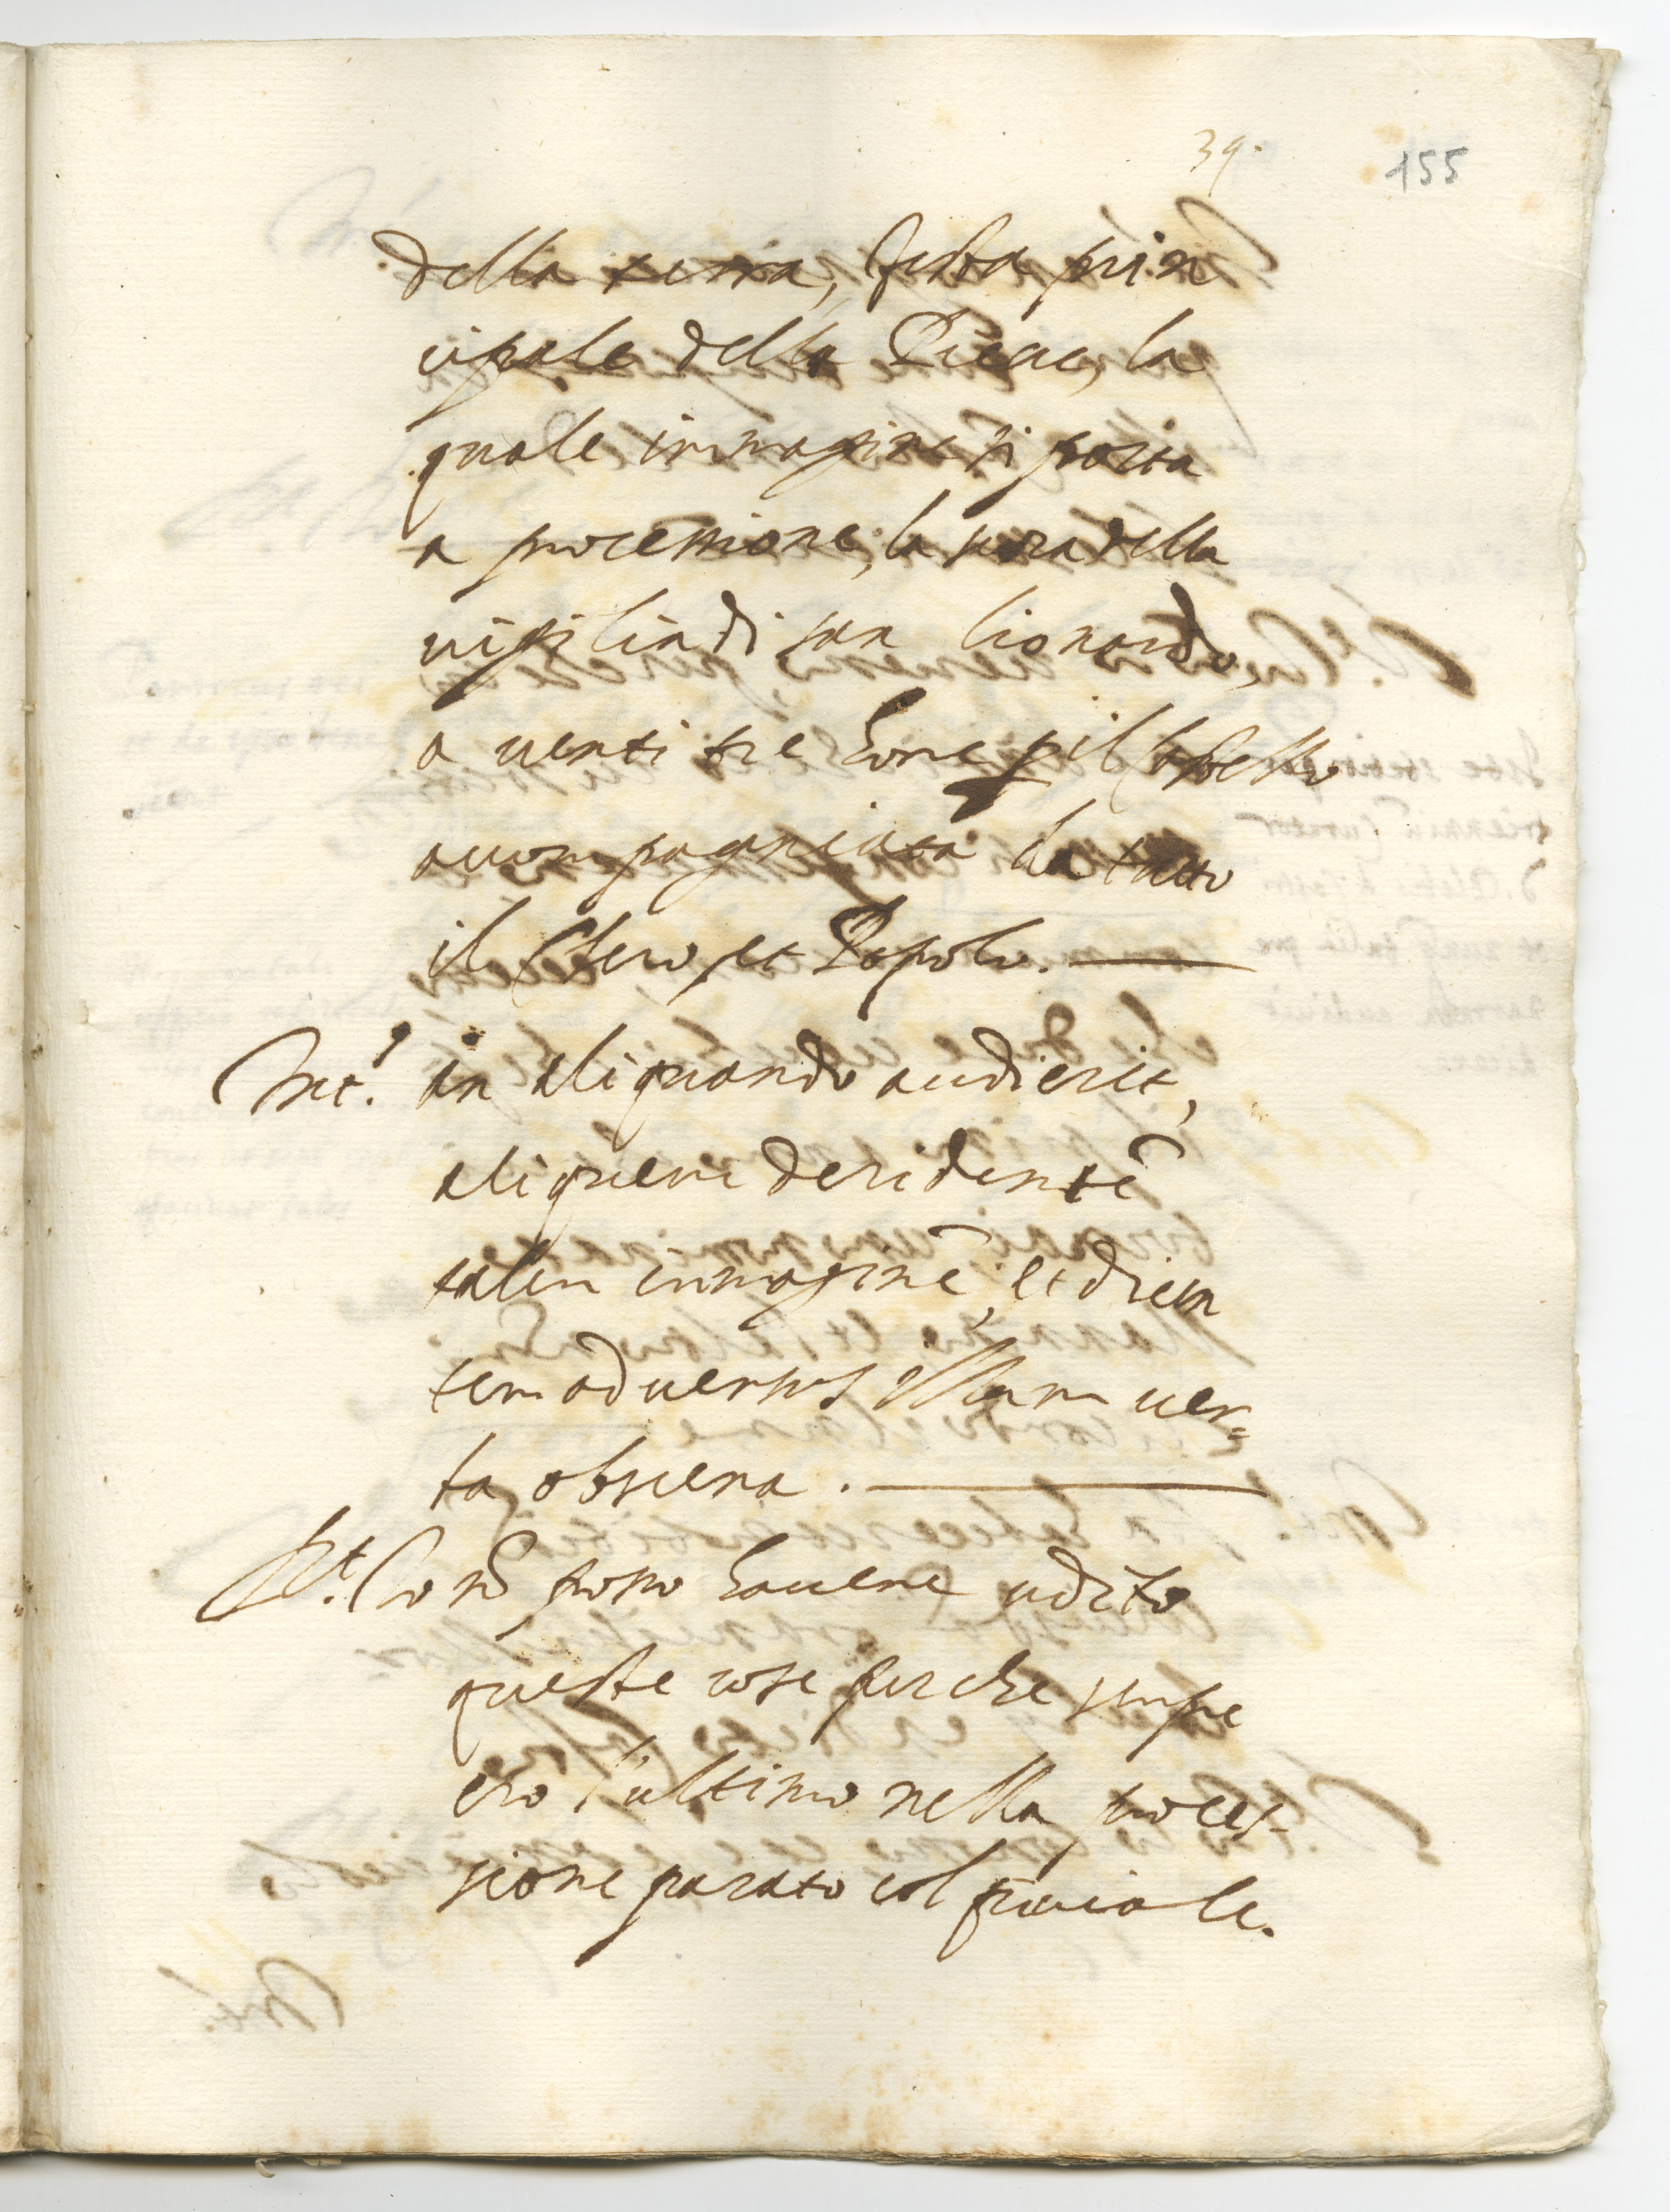 39.
155
della terra, festa prin
cipale della Pieve, la
quale immagine si porta
a processione, la sera della
vigilia di san Lionardo,
a venti tre hore p il Castello
accompagniata da tutto
il Clero, et Popolo.
Int.s an aliquando audierit,
aliquem deridentē
talem immaginē, et dicen
tem adversus illam ver=
ba obscena.
Rt. Io nō posso havere udito
queste cose perche sempre
ero l'ultimo nella proces-
sione parato col piviale.